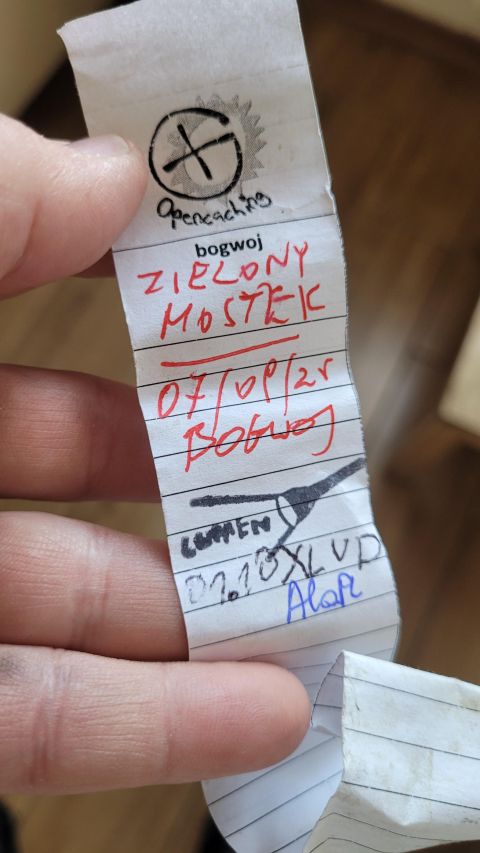 Opencaching
bogwoj
ZIELONY
MOSTEK
07/09/21
BOGWOJ
LUMEN
01.10 XLVD